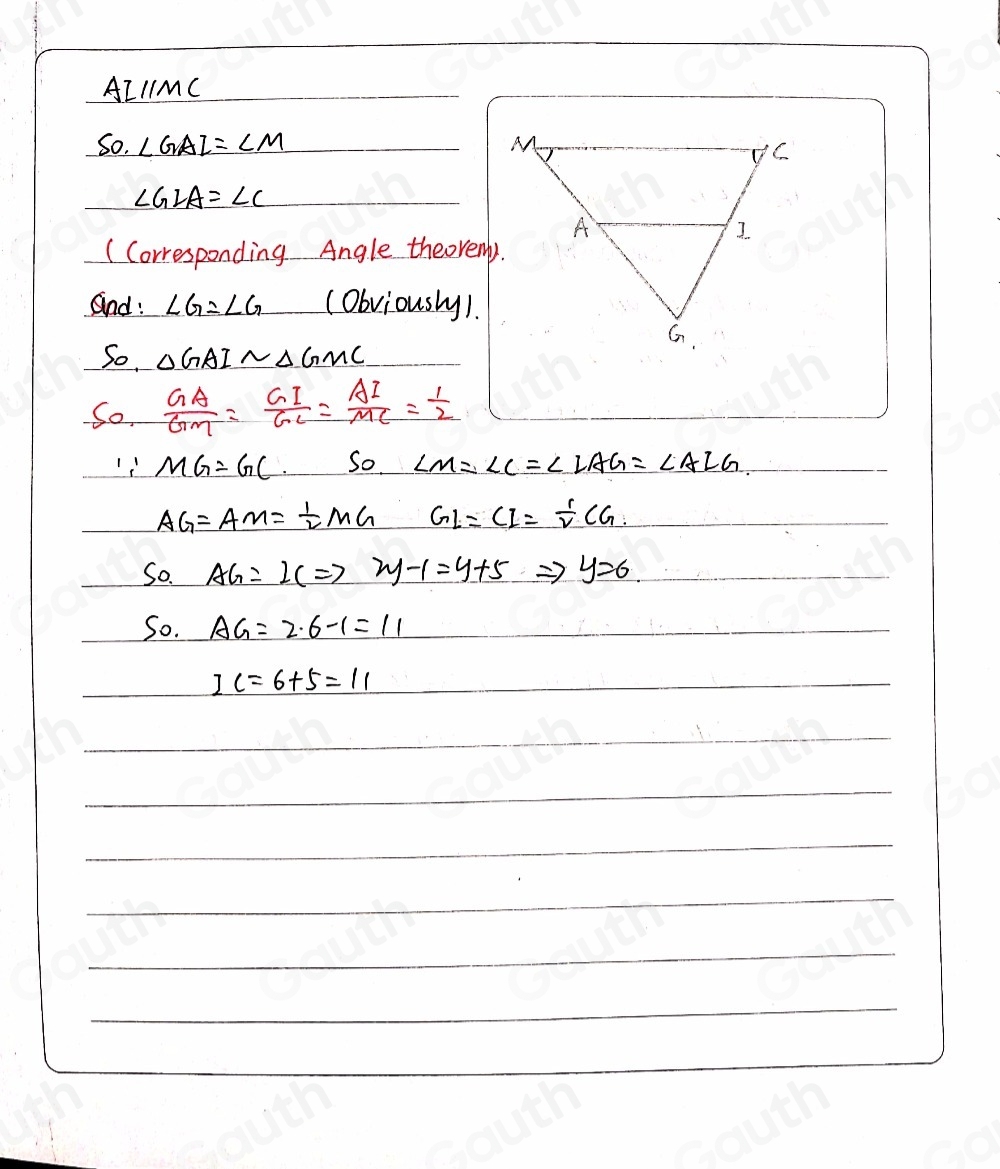 AI//MC
So. ∠GAI = ∠M
∠GIA = ∠C
(Corresponding Angle theorem).
And: ∠G = ∠G (Obviously).
So, △GAI ~ △GMC
So. GA/GM = GI/GC = AI/MC = 1/2
∵ MG = GC. So ∠M = ∠C = ∠IAG = ∠AIG.
AG = AM = 1/2 MG GI = CI = 1/2 CG.
So. AG = IC => 2y-1 = y+5 => y=6.
So. AG = 2·6-1 = 11
IC = 6+5 = 11
M
C
A
I
G.